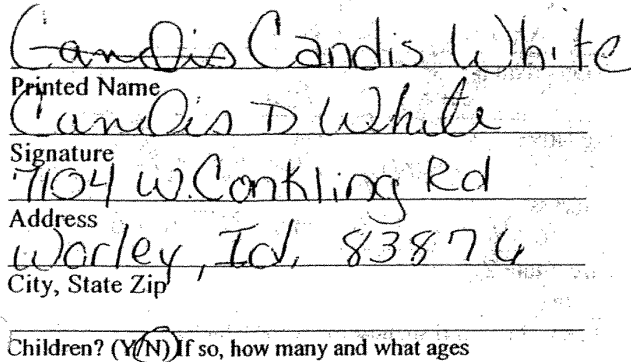 Candis Candis White
Printed Name
Candis D White
Signature
7104 W. Conkling Rd
Address
Worley, Id, 83876
City, State Zip
Children? (Y/N) If so, how many and what ages